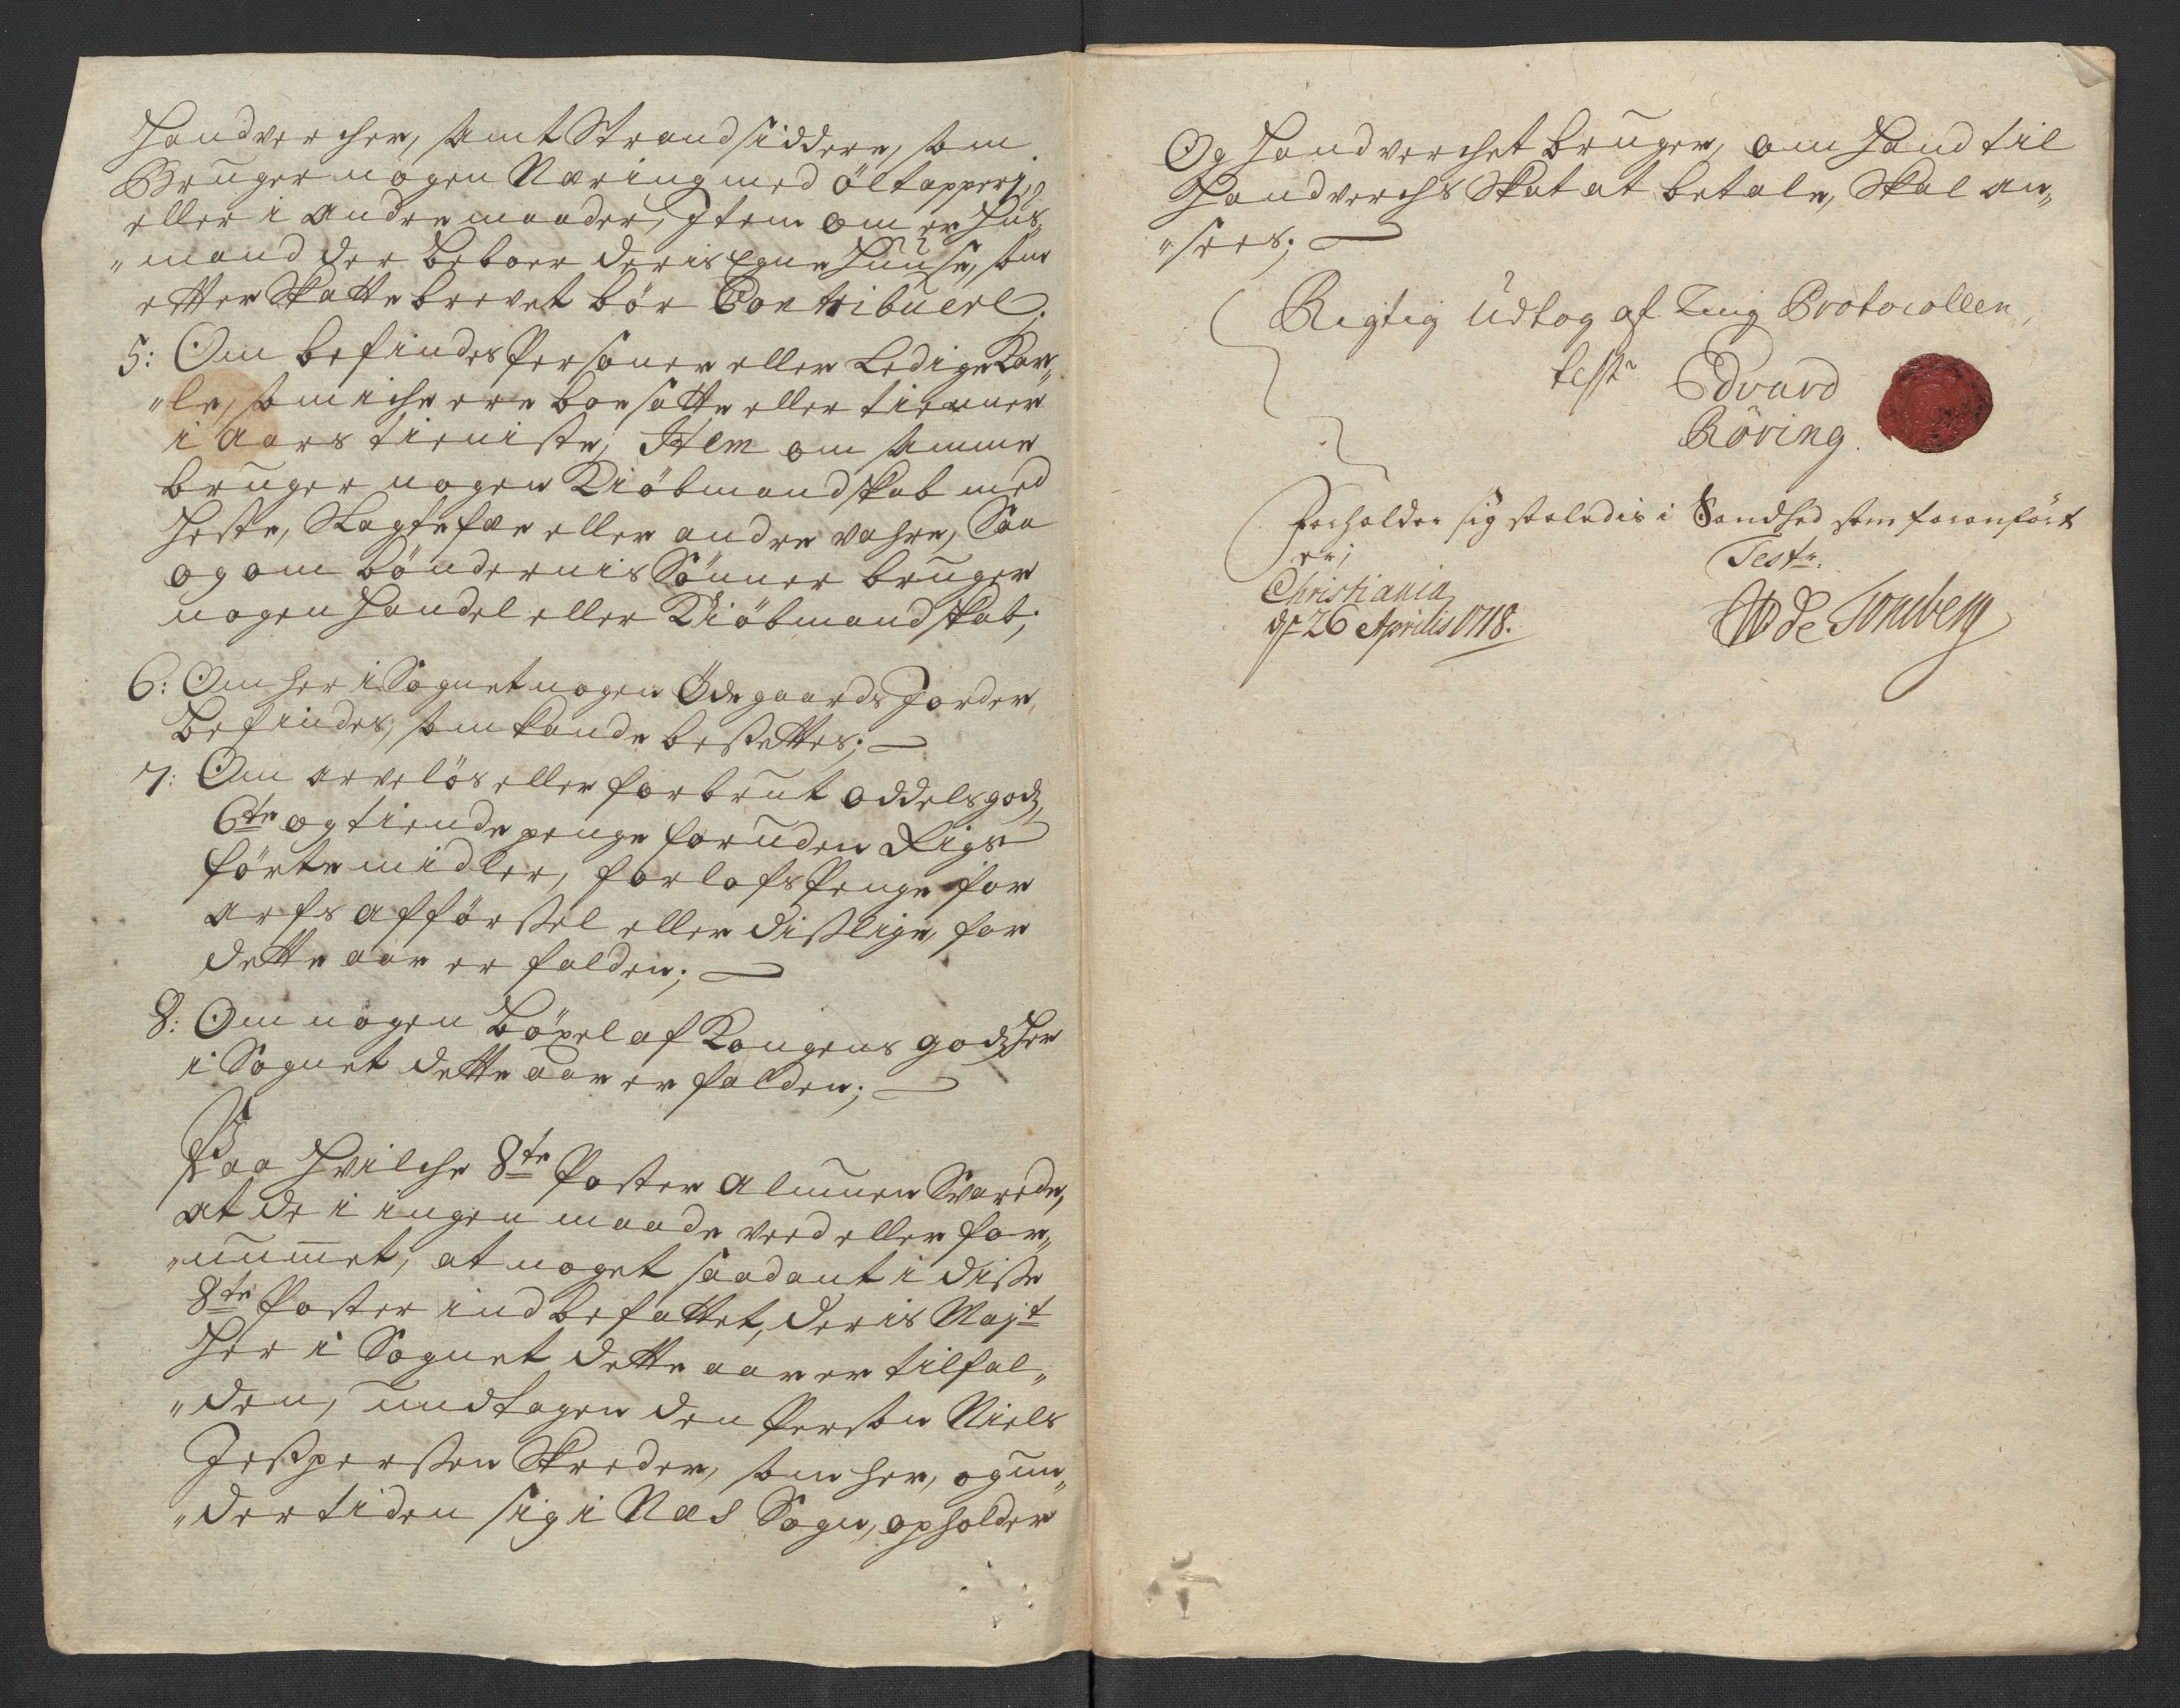 Handvercher, samt Strandsiddere, som
Bruger nogen Næring med öltapperj,
eller i andre maader, Item om er Huus„
„mand der beboer deris Egne Huuse, som
etter Skattebrevet bör Contribuere.
5: Om befindes Personer eller Ledige Kar„
„le, som iche ere boesatte eller tienner
i Aars tieniste, Item om samme
bruger nogen Kiöbmandskab med
Heste, Slagtefæe eller andre vahre, Saa
og om böndernis Sönner bruger
nogen Handel eller Kiöbmandskab;
6: Om her i Sognet nogen Ödegaards Jorder,
befindes, som kunde besettes;
7: Om arvelös eller forbrut oddelsgodz,
6te og tiende penge foruden Rigs
förte midler, forlofs Penge for
arfs afförsel eller dislige, for
dette aar er falden;
8: Om nogen böxel af Kongens godz her
i Sognet dette aar er falden;
Paa Hvilche 8te Poster Almuen Svarede,
at de i ingen maade veed eller for„
„nummet, at noget saadant i disse
8te Poster indbefattet, deris Majt
her i Sognet dette aar er tilfal„
„den, undtagen den Person Niels
Jespersen Skreder, som her, og un„
„dertiden sig i Næs Sogn, opholder
Og Handverchet bruger, om hand til
Handverchs Skat at betale, Skal an„
„sees;
Rigtig Udtog af Ting Protocollen,
test
Edvard
Röring.
Forholder sig saaledis i Sandhed som foranfört
er;
Test.
Christiania
d 26 Aprilis 1718.
de Tonsberg